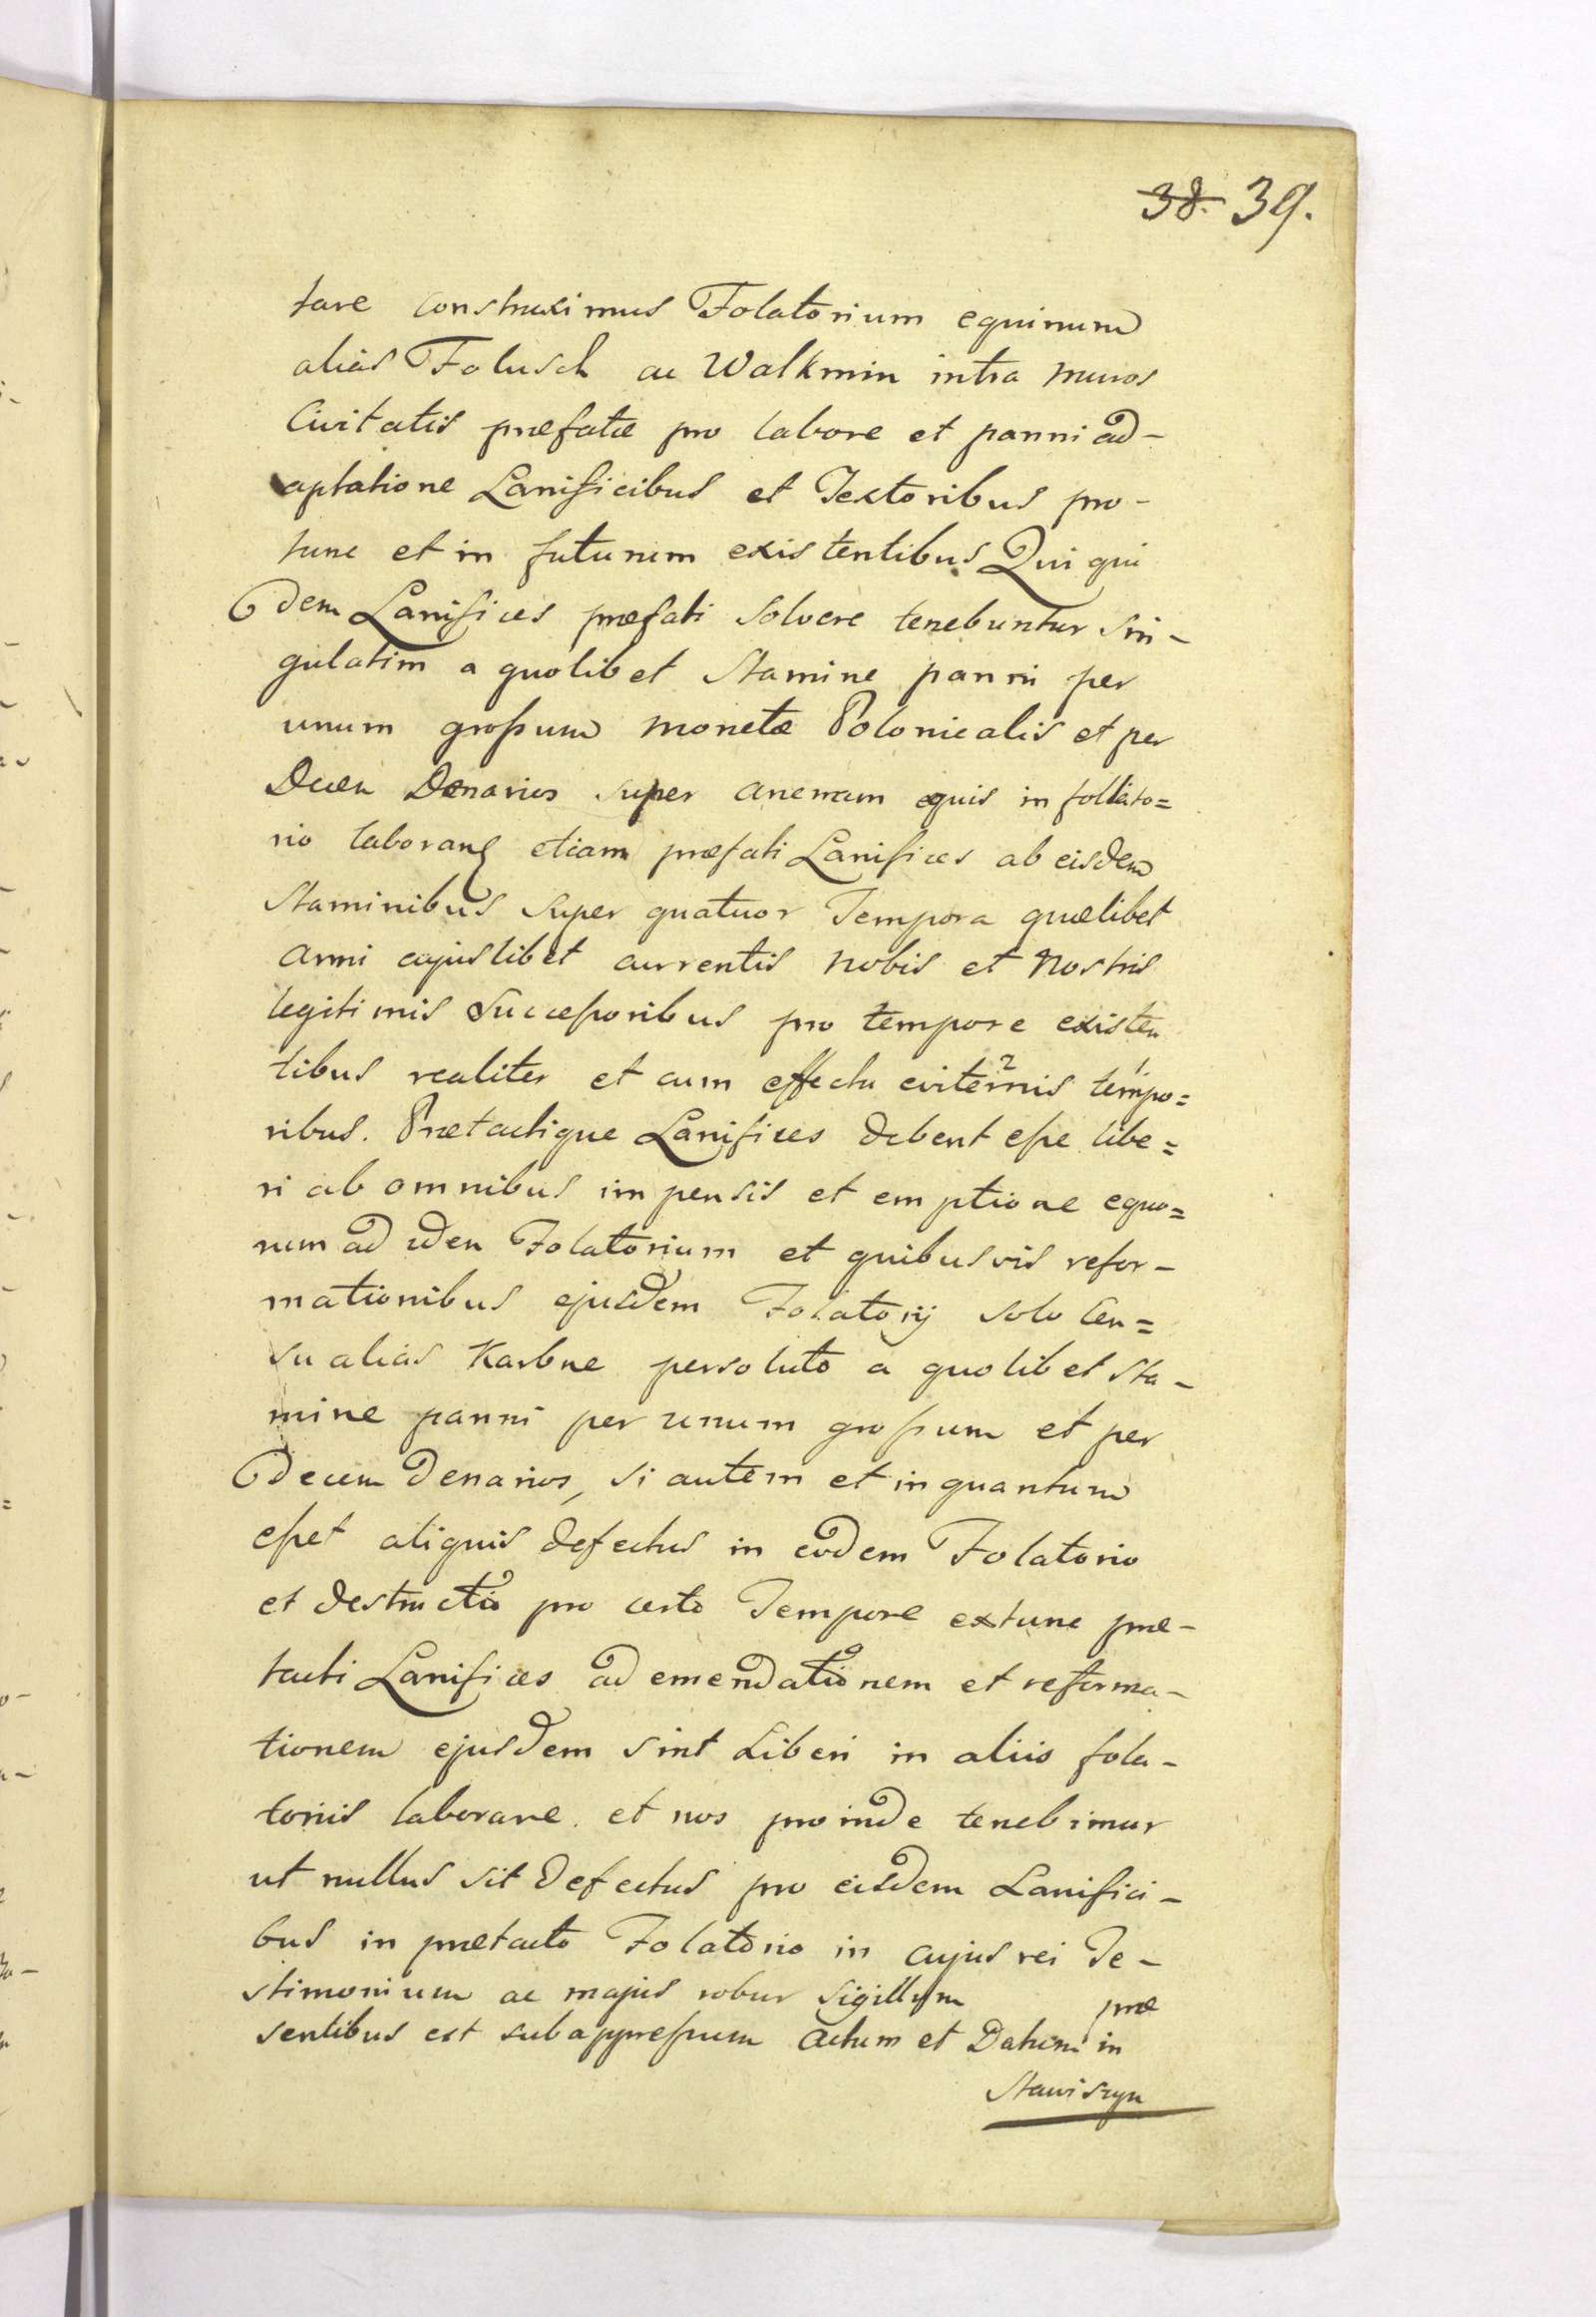 38. 39.
tare construximus Folatorium equinum
alias Folusch ac Walkmin intra muros
Civitatis præfatæ pro labore et panni ad-
aptatione Lanificibus et Textoribus pro-
tunc et in futurum existentibus Qui qui
dem Lanifices præfati solvere tenebuntur sin-
gulatim a quolibet Stamine panni per
unum grossum monetæ Polonicalis et per
Decem Denarios super anenam equis in follato=
rio laboran etiam præfati Lanifices ab eisdem
Staminibus super quatuor Tempora quælibet
anni cujuslibet currentis nobis et Nostris
legitimis Successoribus pro tempore existen
tibus realiter et cum effectu eviternis tempo=
ribus. Prætactique Lanifices debent esse libe=
ri ab omnibus impensis et emptione equo=
rum ad idem Folatorium et quibusvis refor-
mationibus ejusdem Folatorij solo Cen=
su alias Karbne persoluto a quolibet sta-
mine panni per unum grossum et per
decem Denarios, si autem et inquantum
esset aliquis defectus in eodem Folatorio
et destructio pro certo Tempore extunc præ-
tacti Lanifices ad emendationem et reforma-
tionem ejusdem sint Liberi in aliis fola-
toriis laborare. et nos proinde tenebimur
ut nullus sit defectus pro eisdem Lanifici-
bus in prætacto Folatorio in cujus rei Te-
stimonium ac majus robur Sigillum præ
sentibus est subappressum Actum et Datum in
Stawiszyn